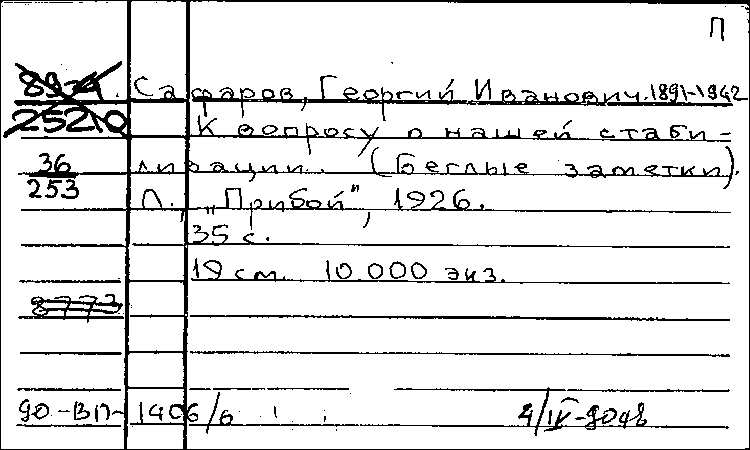 П
89-4. Сафаров, Георгий Иванович. 1891-1942
25210 К вопросу о нашей стаби-
36 лизации. (Беглые заметки).
253 Л., „Прибой", 1926.
35 с.
19 см. 10.000 экз.
8773
90-ВП- 1406/6 4/IV-9048